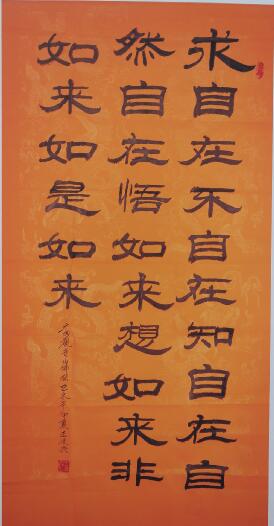 求自在不自在知自在自
然自在悟如来想如来非
如来如是如来